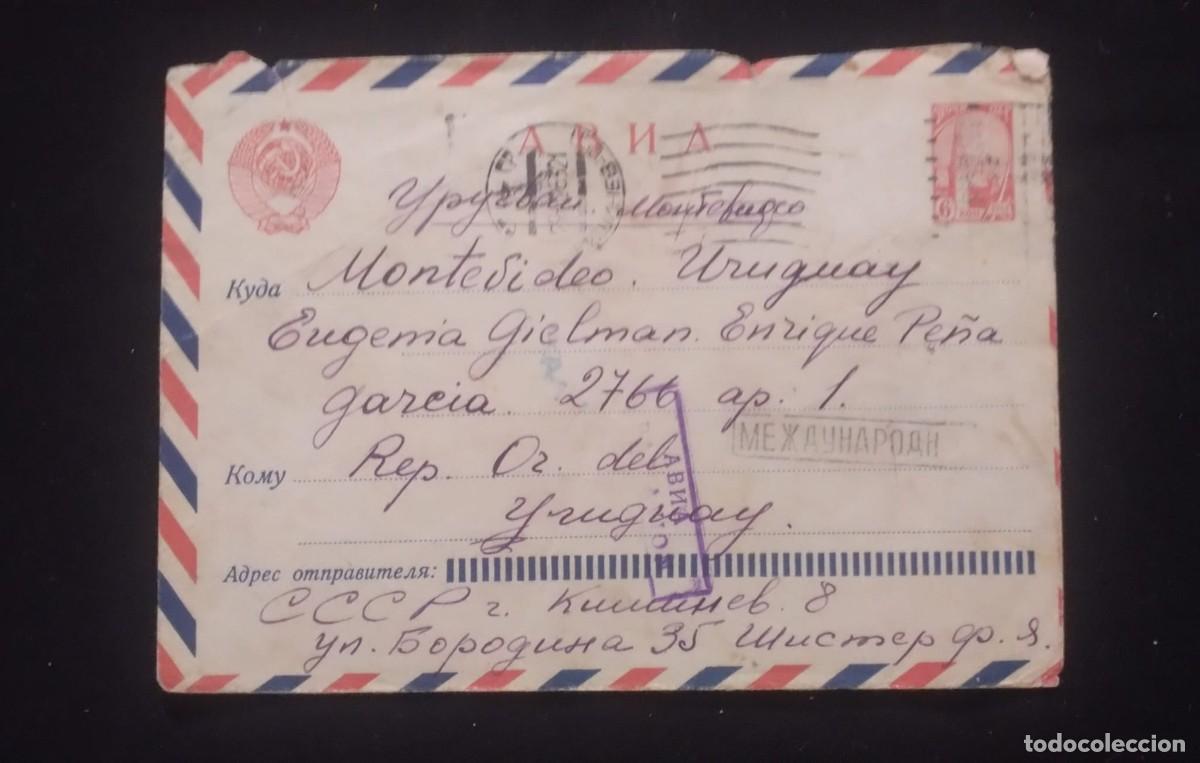 АВИА
Уругвай Монтевидео
Куда Montevideo. Uruguay
Eugenia Gielman. Enrique Peña
garcia. 2766 ap. 1.
МЕЖДУНАРОДН
Кому Rep. Or. del
Uruguay.
АВИА
Адрес отправителя:
СССР г. Кишинев. 8
ул. Бородина 35 Шистер Ф. Я.
6
todocoleccion